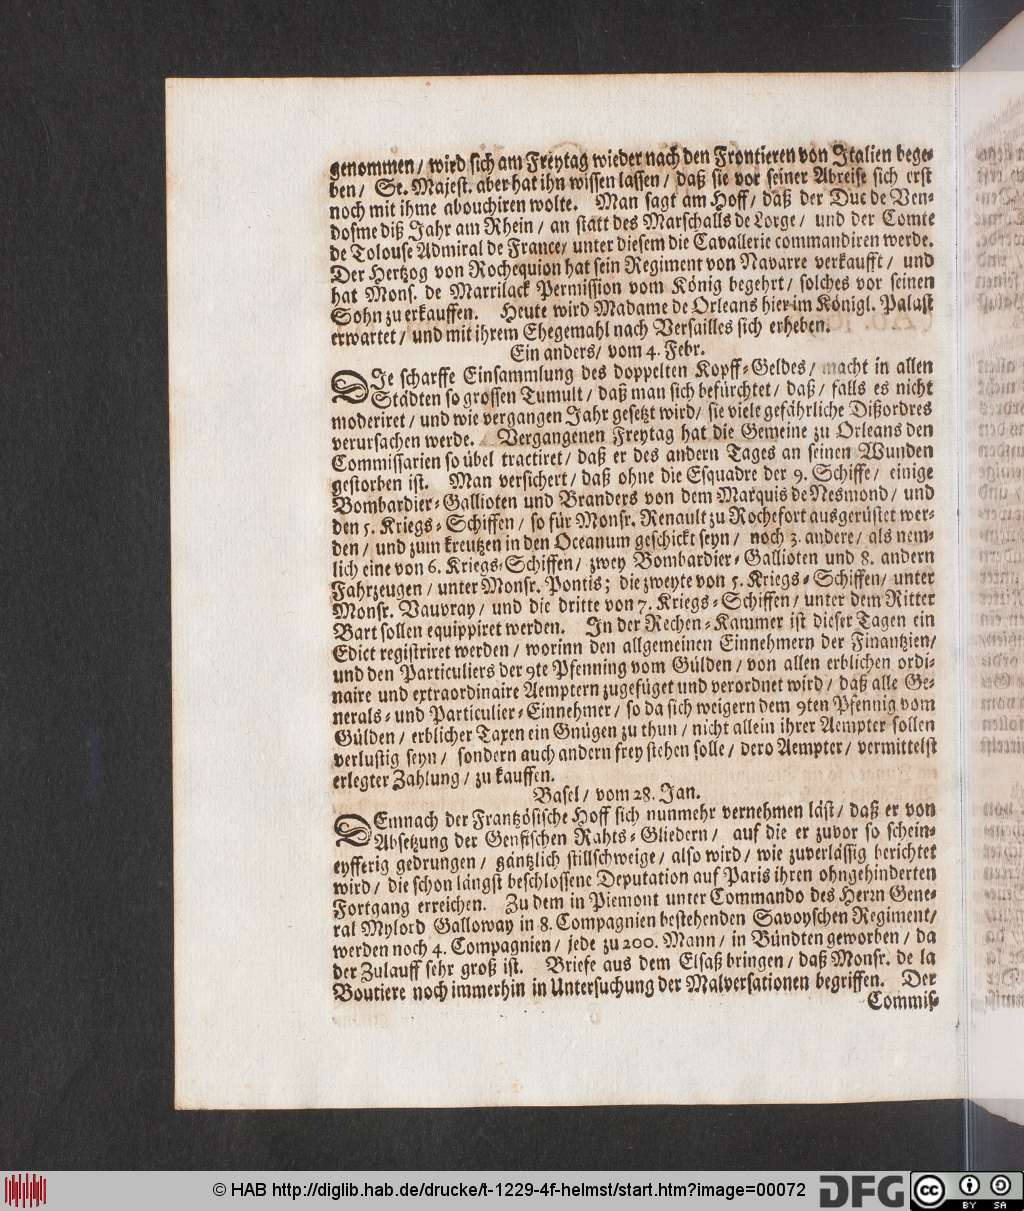 genommen / wird sich am Freytag wieder nach den Frontieren von Italien bege-
ben / Se. Majest. aber hat ihn wissen lassen / daß sie vor seiner Abreise sich erst
noch mit ihme abouchiren wolte. Man sagt am Hoff / daß der Duc de Ven-
dosme diß Jahr am Rhein / an statt des Marschalls de Lorge / und der Comte
de Tolouse Admiral de France / unter diesem die Cavallerie commandiren werde.
Der Hertzog von Rochequion hat sein Regiment von Navarre verkaufft / und
hat Mons. de Marrilack Permission vom König begehrt / solches vor seinen
Sohn zu erkauffen. Heute wird Madame de Orleans hier im Königl. Palast
erwartet / und mit ihrem Ehegemahl nach Versailles sich erheben.
Ein anders / vom 4. Febr.
DIe scharffe Einsammlung des doppelten Kopff-Geldes / macht in allen
Städten so grossen Tumult / daß man sich befürchtet / daß / falls es nicht
moderiret / und wie vergangen Jahr gesetzt wird / sie viele gefährliche Dißordres
verursachen werde. Vergangenen Freytag hat die Gemeine zu Orleans den
Commissarien so übel tractiret / daß er des andern Tages an seinen Wunden
gestorben ist. Man versichert / daß ohne die Esquadre der 9. Schiffe / einige
Bombardier-Gallioten und Branders von dem Marquis de Nesmond / und
den 5. Kriegs-Schiffen / so für Monsr. Renault zu Rochefort ausgerüstet wer-
den / und zum kreutzen in den Oceanum geschickt seyn / noch 3. andere / als nem-
lich eine von 6. Kriegs-Schiffen / zwey Bombardier-Gallioten und 8. andern
Fahrzeugen / unter Monsr. Pontis; die zweyte von 5. Kriegs-Schiffen / unter
Monsr. Vauvray / und die dritte von 7. Kriegs-Schiffen / unter dem Ritter
Bart sollen equippiret werden. In der Rechen-Kammer ist dieser Tagen ein
Edict registriret werden / worinn den allgemeinen Einnehmern der Finantzien /
und den Particuliers der 9te Pfenning vom Gülden / von allen erblichen ordi-
naire und extraordinaire Aemptern zugefüget und verordnet wird / daß alle Ge-
nerals- und Particulier-Einnehmer / so da sich weigern dem 9ten Pfennig vom
Gülden / erblicher Taxen ein Gnügen zu thun / nicht allein ihrer Aempter sollen
verlustig seyn / sondern auch andern frey stehen solle / dero Aempter / vermittelst
erlegter Zahlung / zu kauffen.
Basel / vom 28. Jan.
DEmnach der Frantzösische Hoff sich nunmehr vernehmen läst / daß er von
Absetzung der Genfischen Rahts-Gliedern / auf die er zuvor so schein-
eyfferig gedrungen / gäntzlich stillschweige / also wird / wie zuverlässig berichtet
wird / die schon längst beschlossene Deputation auf Paris ihren ohngehinderten
Fortgang erreichen. Zu dem in Piemont unter Commando des Herrn Gene-
ral Mylord Galloway in 8. Compagnien bestehenden Savoyschen Regiment /
werden noch 4. Compagnien / jede zu 200. Mann / in Bündten geworben / da
der Zulauff sehr groß ist. Briefe aus dem Elsaß bringen / daß Monsr. de la
Boutiere noch immerhin in Untersuchung der Malversationen begriffen. Der
Commis-
© HAB http://diglib.hab.de/drucke/t-1229-4f-helmst/start.htm?image=00072
DFG
cc BY SA